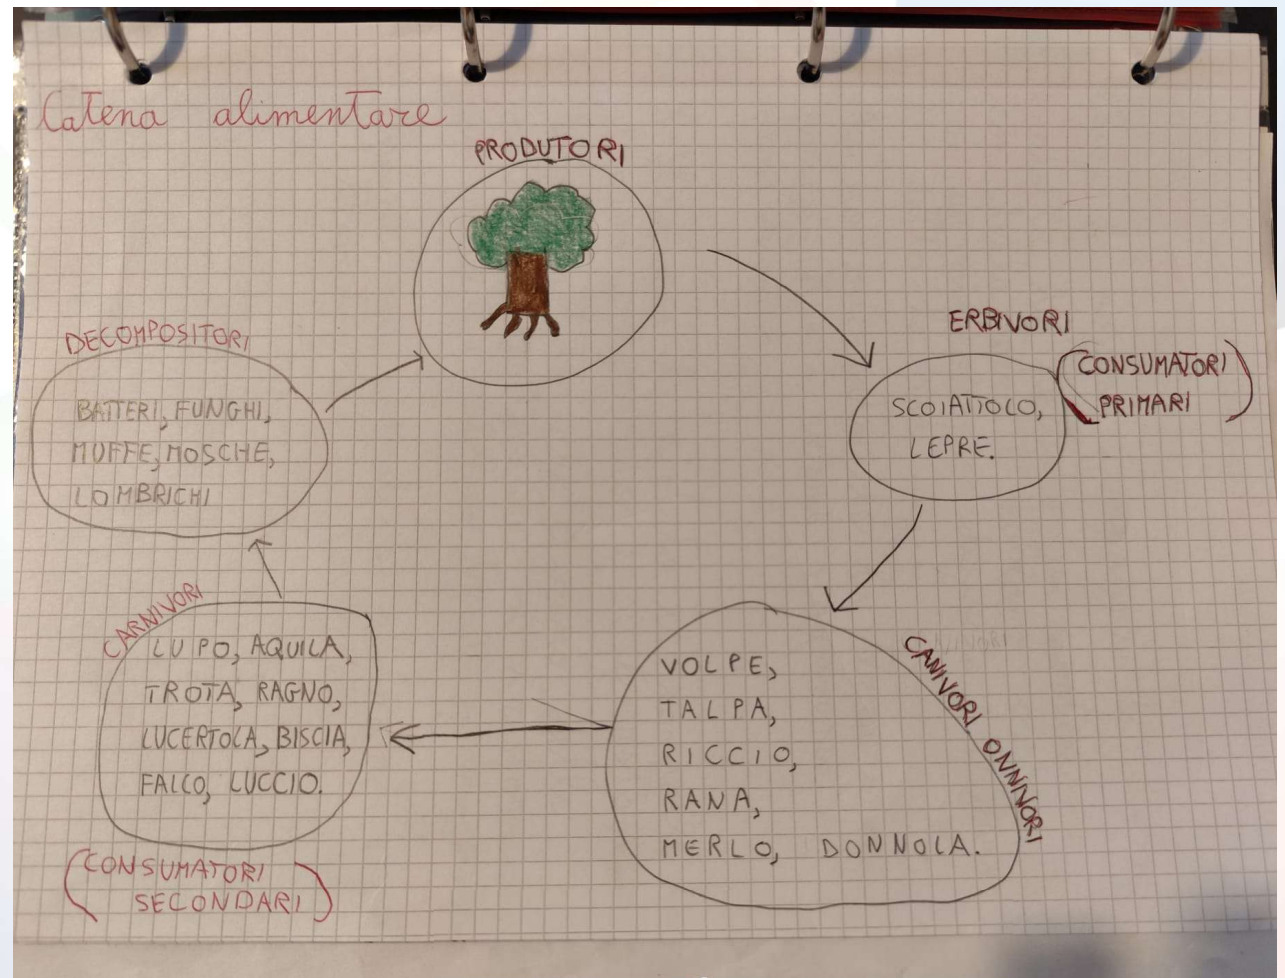 Catena alimentare
PRODUTORI
ERBIVORI
(CONSUMATORI
PRIMARI)
SCOIATTOLO,
LEPRE.
CANIVORI, ONNIVORI
VOLPE,
TALPA,
RICCIO,
RANA,
MERLO, DONNOLA.
CARNIVORI
LUPO, AQUILA,
TROTA, RAGNO,
LUCERTOLA, BISCIA,
FALCO, LUCCIO.
(CONSUMATORI
SECONDARI)
DECOMPOSITORI
BATTERI, FUNGHI,
MUFFE, MOSCHE,
LOMBRICHI